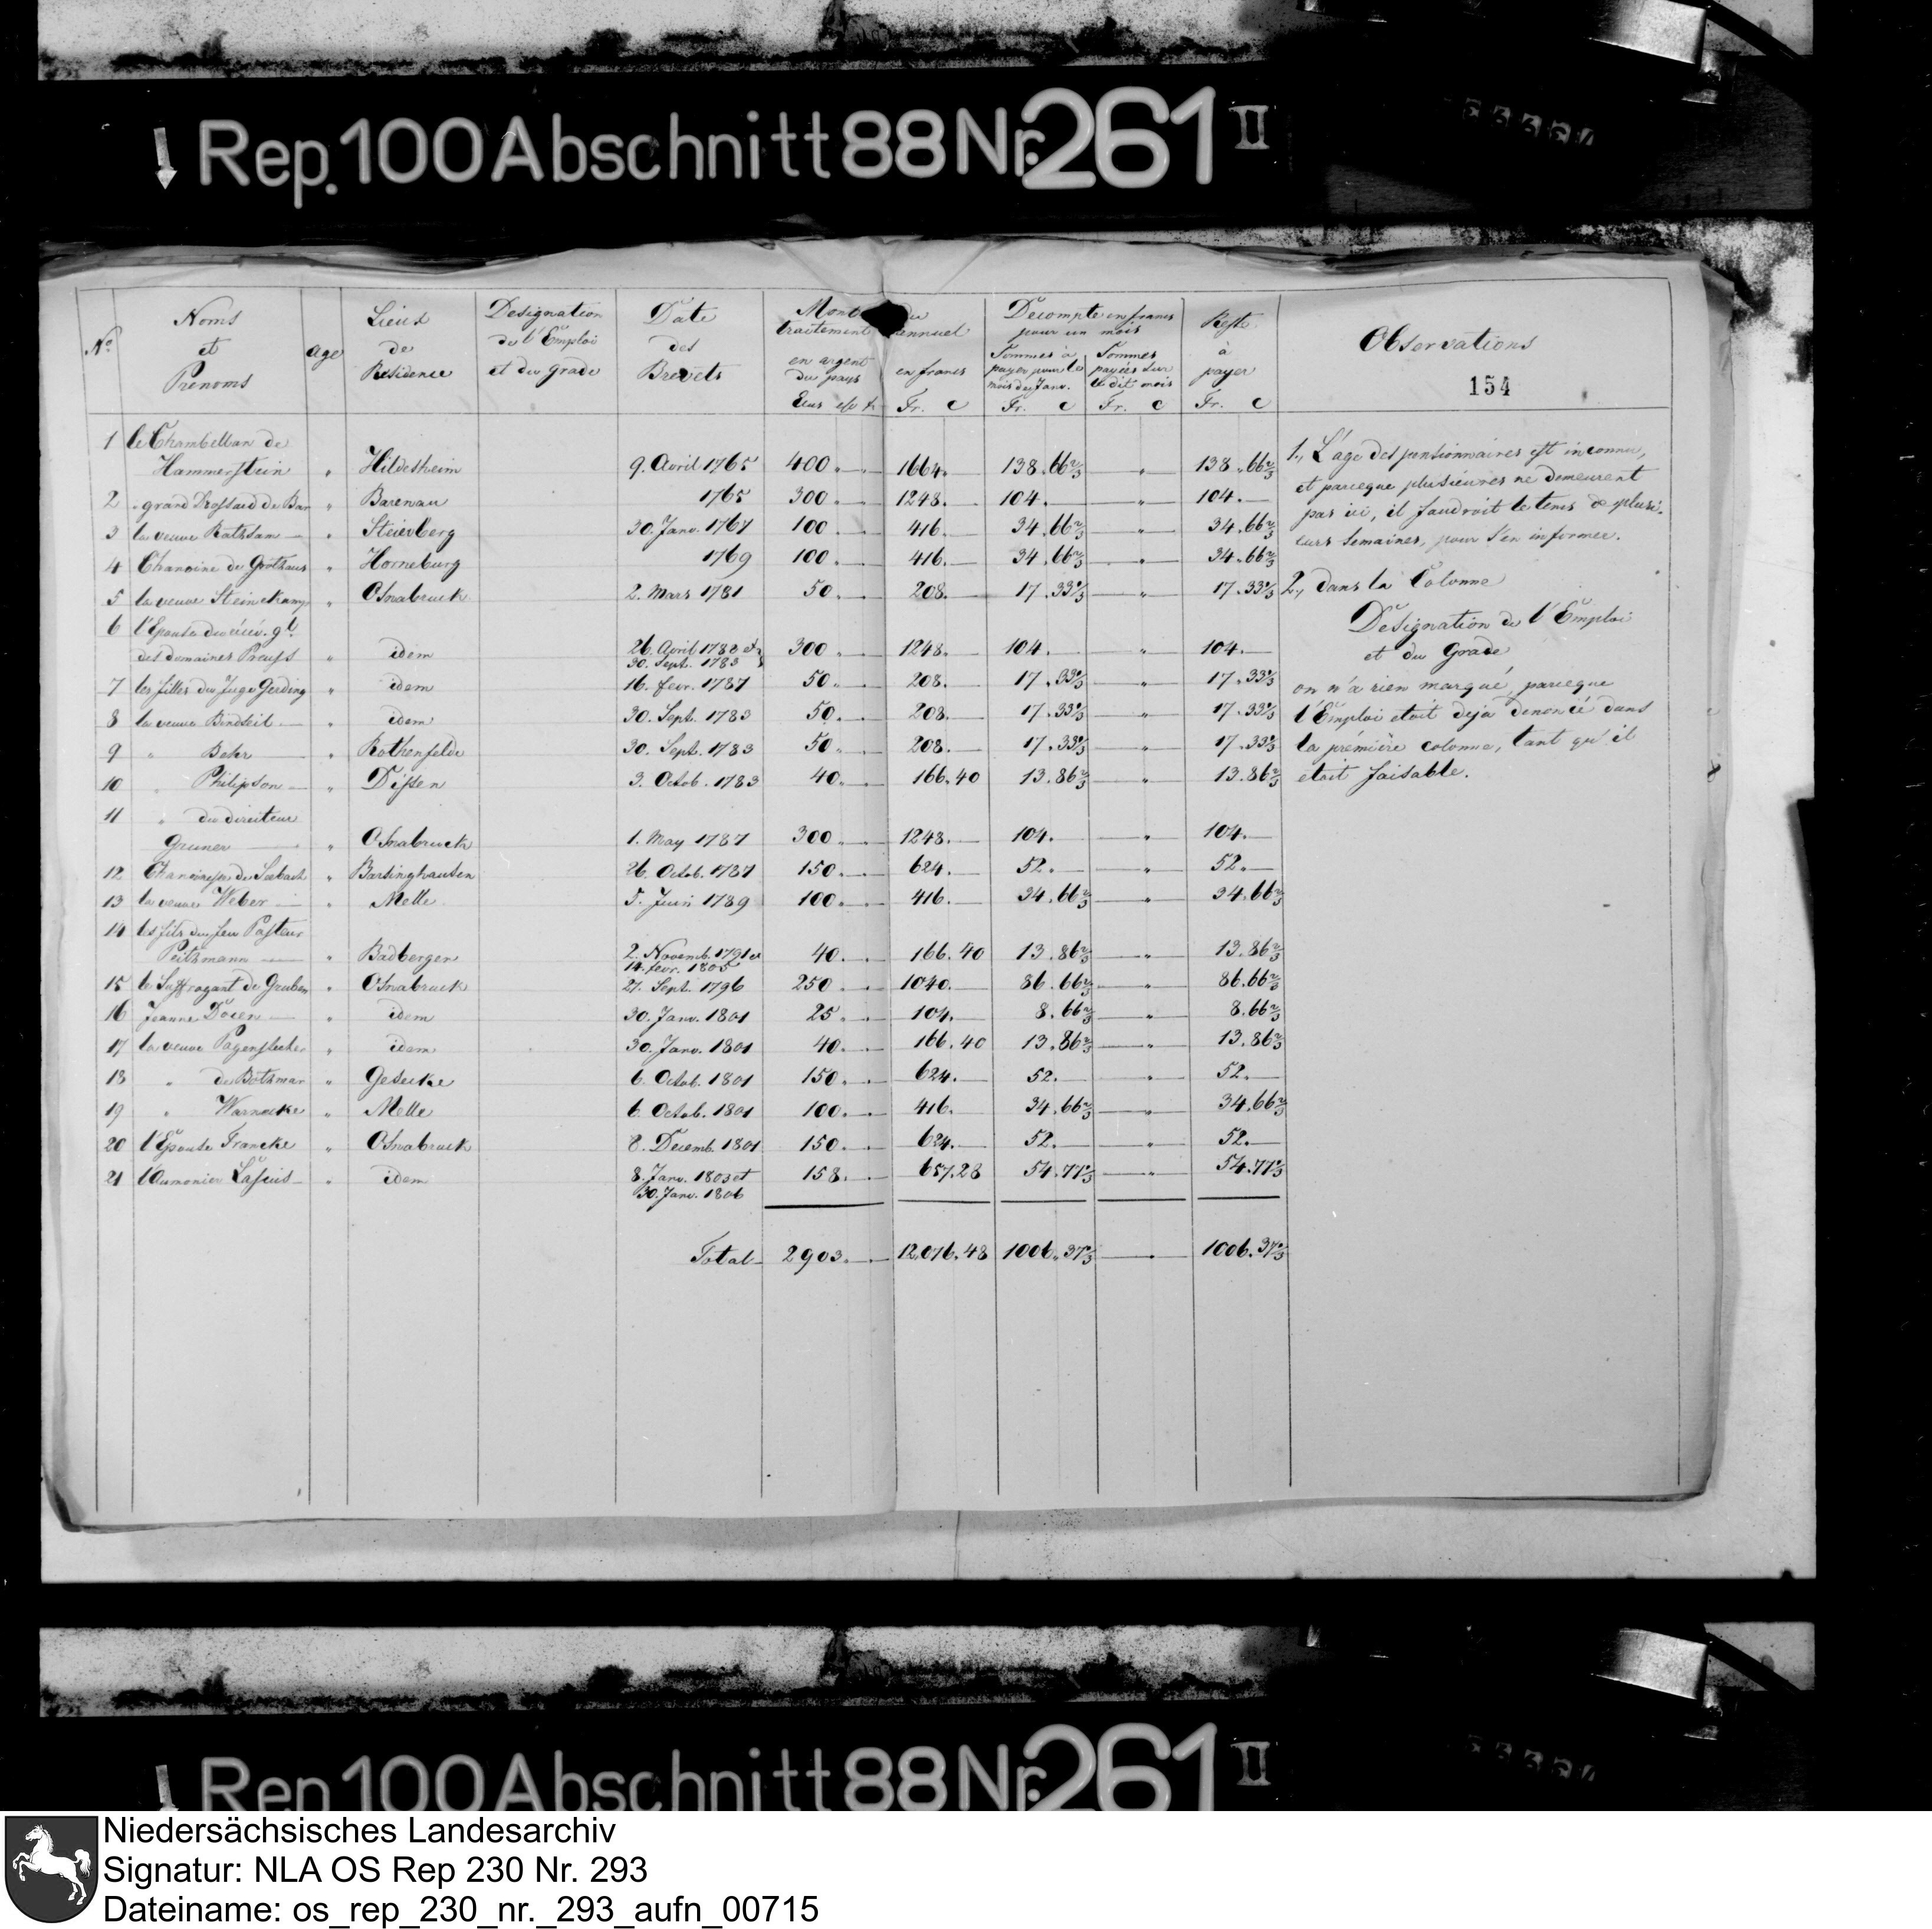 Rep. 100 Abschnitt 88 Nr. 261 II
No. Noms et Prenoms age Lieux de Residence Designation de l'Emploi et du Grade Date des Brevets Mont du traitement annuel en argent du pays Ecus en francs Fr. C Decompte en francs pour un mois Sommes à payer pour le mois de Janv. Fr. C Sommes payées sur le dit mois Fr. C Reste à payer Fr. C Observations
154
1 le Chambellan de
Hammerstein " Hildesheim 9. Avril 1765 400 1664. 138.66 2/3 " 138.66 2/3
2 " grand Drossard de Bar " Barenau 1765 300 1248. 104. " 104.
3 la veuve Ratsam " Steierberg 30. Janv. 1767 100 416. 34.66 2/3 " 34.66 2/3
4 Chanoine de Grothaus " Horneburg 1769 100 416. 34.66 2/3 " 34.66 2/3
5 la veuve Steinekamp " Osnabruck 2. Mars 1781 50 208. 17.33 1/3 " 17.33 1/3
6 l'Epouse du
des domaines Preuss " idem 26. Avril 1782 et 30. Sept. 1783 300 1248. 104. " 104.
7 les filles du Juge Gerding " idem 16. fevr. 1787 50 208. 17.33 1/3 " 17.33 1/3
8 la veuve Bindseil " idem 30. Sept. 1783 50. 208. 17.33 1/3 " 17.33 1/3
9 " Beker " Rothenfelde 30. Sept. 1783 50 208. 17.33 1/3 " 17.33 1/3
10 " Philipson " Dissen 3. Octob. 1783 40 166.40 13.86 2/3 " 13.86 2/3
11 " du directeur
Gruner " Osnabruck 1. May 1787 300 1248. 104. " 104.
12 Chanoinesse de Seebach " Barsinghausen 26. Octob. 1787 150 624. 52. " 52.
13 la veuve Weber " Melle 5. Juin 1789 100 416. 34.66 2/3 " 34.66 2/3
14 les fils du feu Pasteur
Peithmann " Badbergen 2. Novemb. 1791 et 14. fevr. 1805 40. 166.40 13.86 2/3 " 13.86 2/3
15 le Suffragant de Gruben " Osnabruck 27. Sept. 1796 250 1040. 86.66 2/3 " 86.66 2/3
16 Jeanne Doien " idem 30. Janv. 1801 25 104. 8.66 2/3 " 8.66 2/3
17 la veuve Pagenstecher " idem 30. Janv. 1801 40. 166.40 13.86 2/3 " 13.86 2/3
18 " de Bothmar " Geseke 6. Octob. 1801 150 624. 52. " 52.
19 " Warnecke " Melle 6. Octob. 1801 100. 416. 34.66 2/3 " 34.66 2/3
20 l'Epouse Francke " Osnabruck 8. Decemb. 1801 150. 624. 52. " 52.
21 l'Aumonier Lasius " idem 8. Janv. 1803 et 30. Janv. 1806 158. 657.28 54.77 1/3 " 54.77 1/3
Total 2903. 12,076.48 1006.37 1/3 1006.37 1/3
1., L'age des pensionnaires est inconnu,
et parceque plusieures ne demeurent
pas ici, il faudroit le tems de plusi-
eurs Semaines, pour s'en informer.
2., dans la Colonne
Designation de l'Emploi
et du Grade
on n'a rien marqué, parceque
l'Emploi etoit deja denoncé dans
la premiére colonne, tant qu'il
etoit faisable.
Rep. 100 Abschnitt 88 Nr. 261 II
Niedersächsisches Landesarchiv
Signatur: NLA OS Rep 230 Nr. 293
Dateiname: os_rep_230_nr._293_aufn_00715